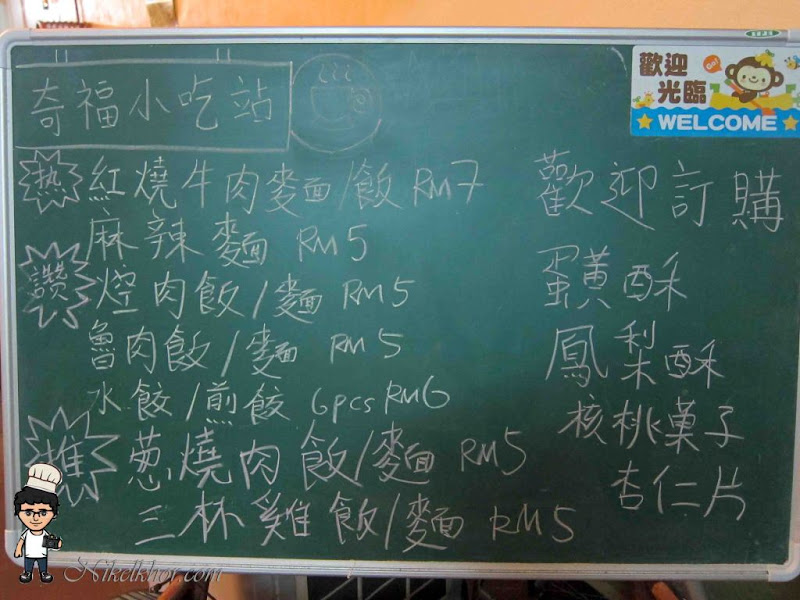 奇福小吃站
熱 紅燒牛肉麵/飯 RM7
麻辣麵 RM5
讚 焢肉飯/麵 RM5
魯肉飯/麵 RM5
水餃/煎餃 6pcs RM6
推 葱燒肉飯/麵 RM5
三杯雞飯/麵 RM5
歡迎光臨
Go!
WELCOME
歡迎訂購
蛋黃酥
鳳梨酥
核桃菓子
杏仁片
Nikelkhor.com